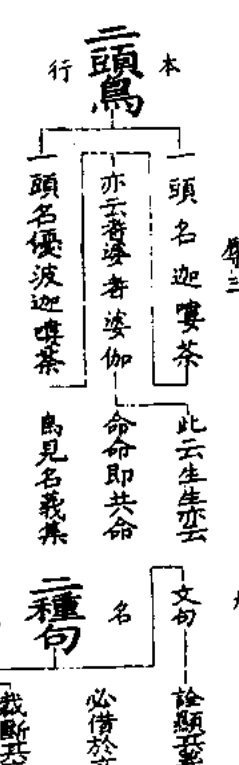 本行
二頭鳥
一頭名迦嘍荼
亦云耆婆耆婆伽
一頭名優波迦嘍荼
此云生生亦云
命命即共命
鳥見名義集
名
二種句
文句
詮顯其
必借於
裁斷其